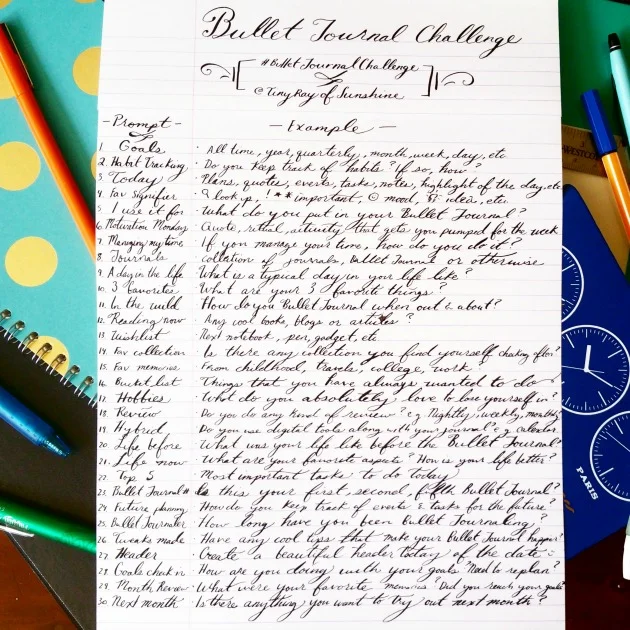 Bullet Journal Challenge
#BulletJournalChallenge
@TinyRayofSunshine
- Prompt - - Example -
1 Goals · All time, year, quarterly, month, week, day, etc
2. Habit Tracking · Do you keep track of habits? If so, how?
3 Today · Plans, quotes, events, tasks, notes, highlight of the day, etc
4. Fav Signifier look up, ! ** important, mood, idea, etc.
5. I use it for · What do you put in your Bullet Journal?
6. Motivation Monday · Quote, ritual, activity that gets you pumped for the week
7. Managing my time · If you manage your time, how do you do it?
8. Journals · collection of journals, Bullet Journal or otherwise
9. A day in the life · What is a typical day in your life like?
10. 3 favorites · What are your 3 favorite things?
11. In the wild · How do you Bullet Journal when out & about?
12. Reading now · Any cool books, blogs or articles?
13. Wishlist · Next notebook, pen, gadget, etc
14. Fav collection · Is there any collection you find yourself checking often?
15. Fav memories · From childhood, travels, college, work
16. Bucket list · Things that you have always wanted to do
17. Hobbies · What do you absolutely love to lose yourself in?
18. Review · Do you do any kind of review? e.g. Nightly, weekly, monthly?
19. Hybrid · Do you use digital tools along with your journal? e.g. calendar
20. Life before · What was your life like before the Bullet Journal?
21. Life now · What are your favorite aspects? How is your life better?
22. Top 5 · Most important tasks to do today
23. Bullet Journal # · Is this your first, second, fifth Bullet Journal?
24 Future planning · How do you keep track of events & tasks for the future?
25. Bullet Journaler · How long have you been Bullet Journaling?
26. Tweaks made · Have any cool tips that make your Bullet Journal happier?
27. Header · Create a beautiful header today of the date
28. Goals check in · How are you doing with your goals? Need to replan?
29. Month Review · What were your favorite memories? Did you reach your goals?
30. Next month · Is there anything you want to try out next month?
WESTCOTT
PARIS